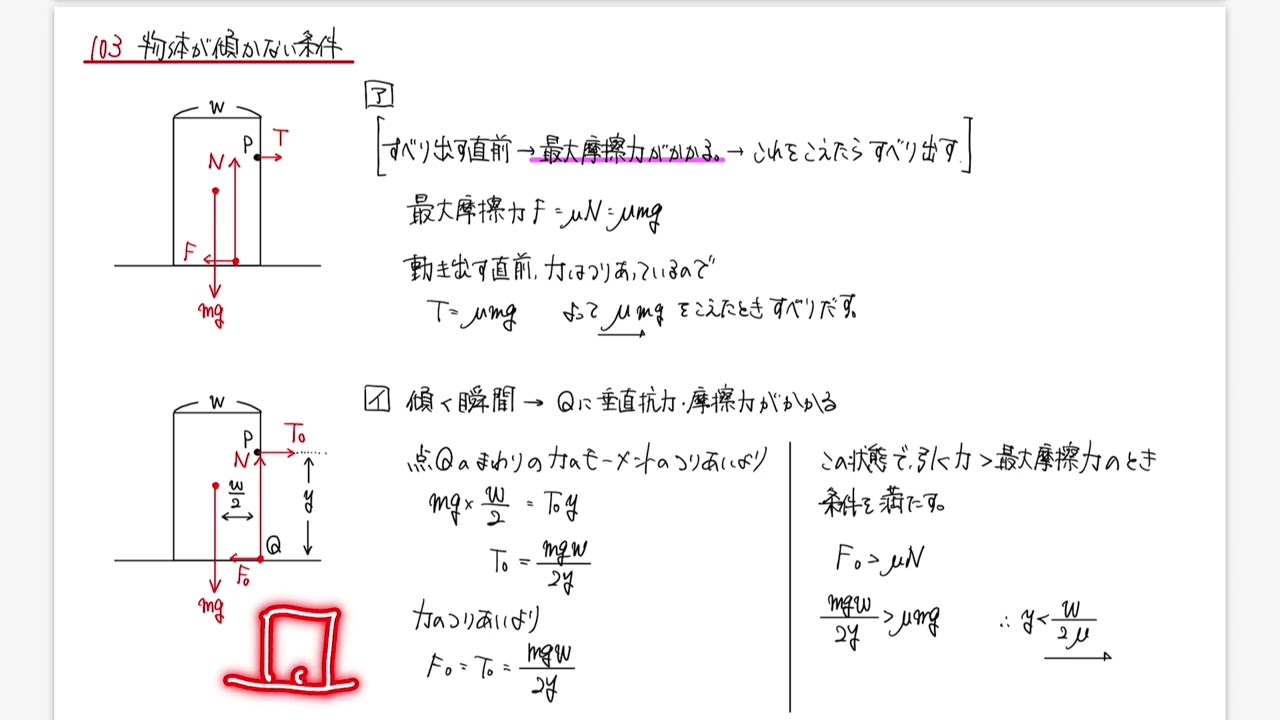 103 物体が傾かない条件
w
P
T
N
F
mg
ア
[すべり出す直前→最大摩擦力がかかる。→これをこえたらすべり出す.]
最大摩擦力F=μN=μmg
動き出す直前、力はつりあっているので
T=μmg よって μmg をこえたときすべりだす。
w
P
T₀
N
w/2
y
Q
F₀
mg
イ 傾く瞬間→Qに垂直抗力・摩擦力がかかる
点Qのまわりの力のモーメントのつりあいより
mg×w/2=T₀y
T₀=mgw/2y
力のつりあいより
F₀=T₀=mgw/2y
この状態で、引く力>最大摩擦力のとき
条件を満たす。
F₀>μN
mgw/2y>μmg ∴y<w/2μ